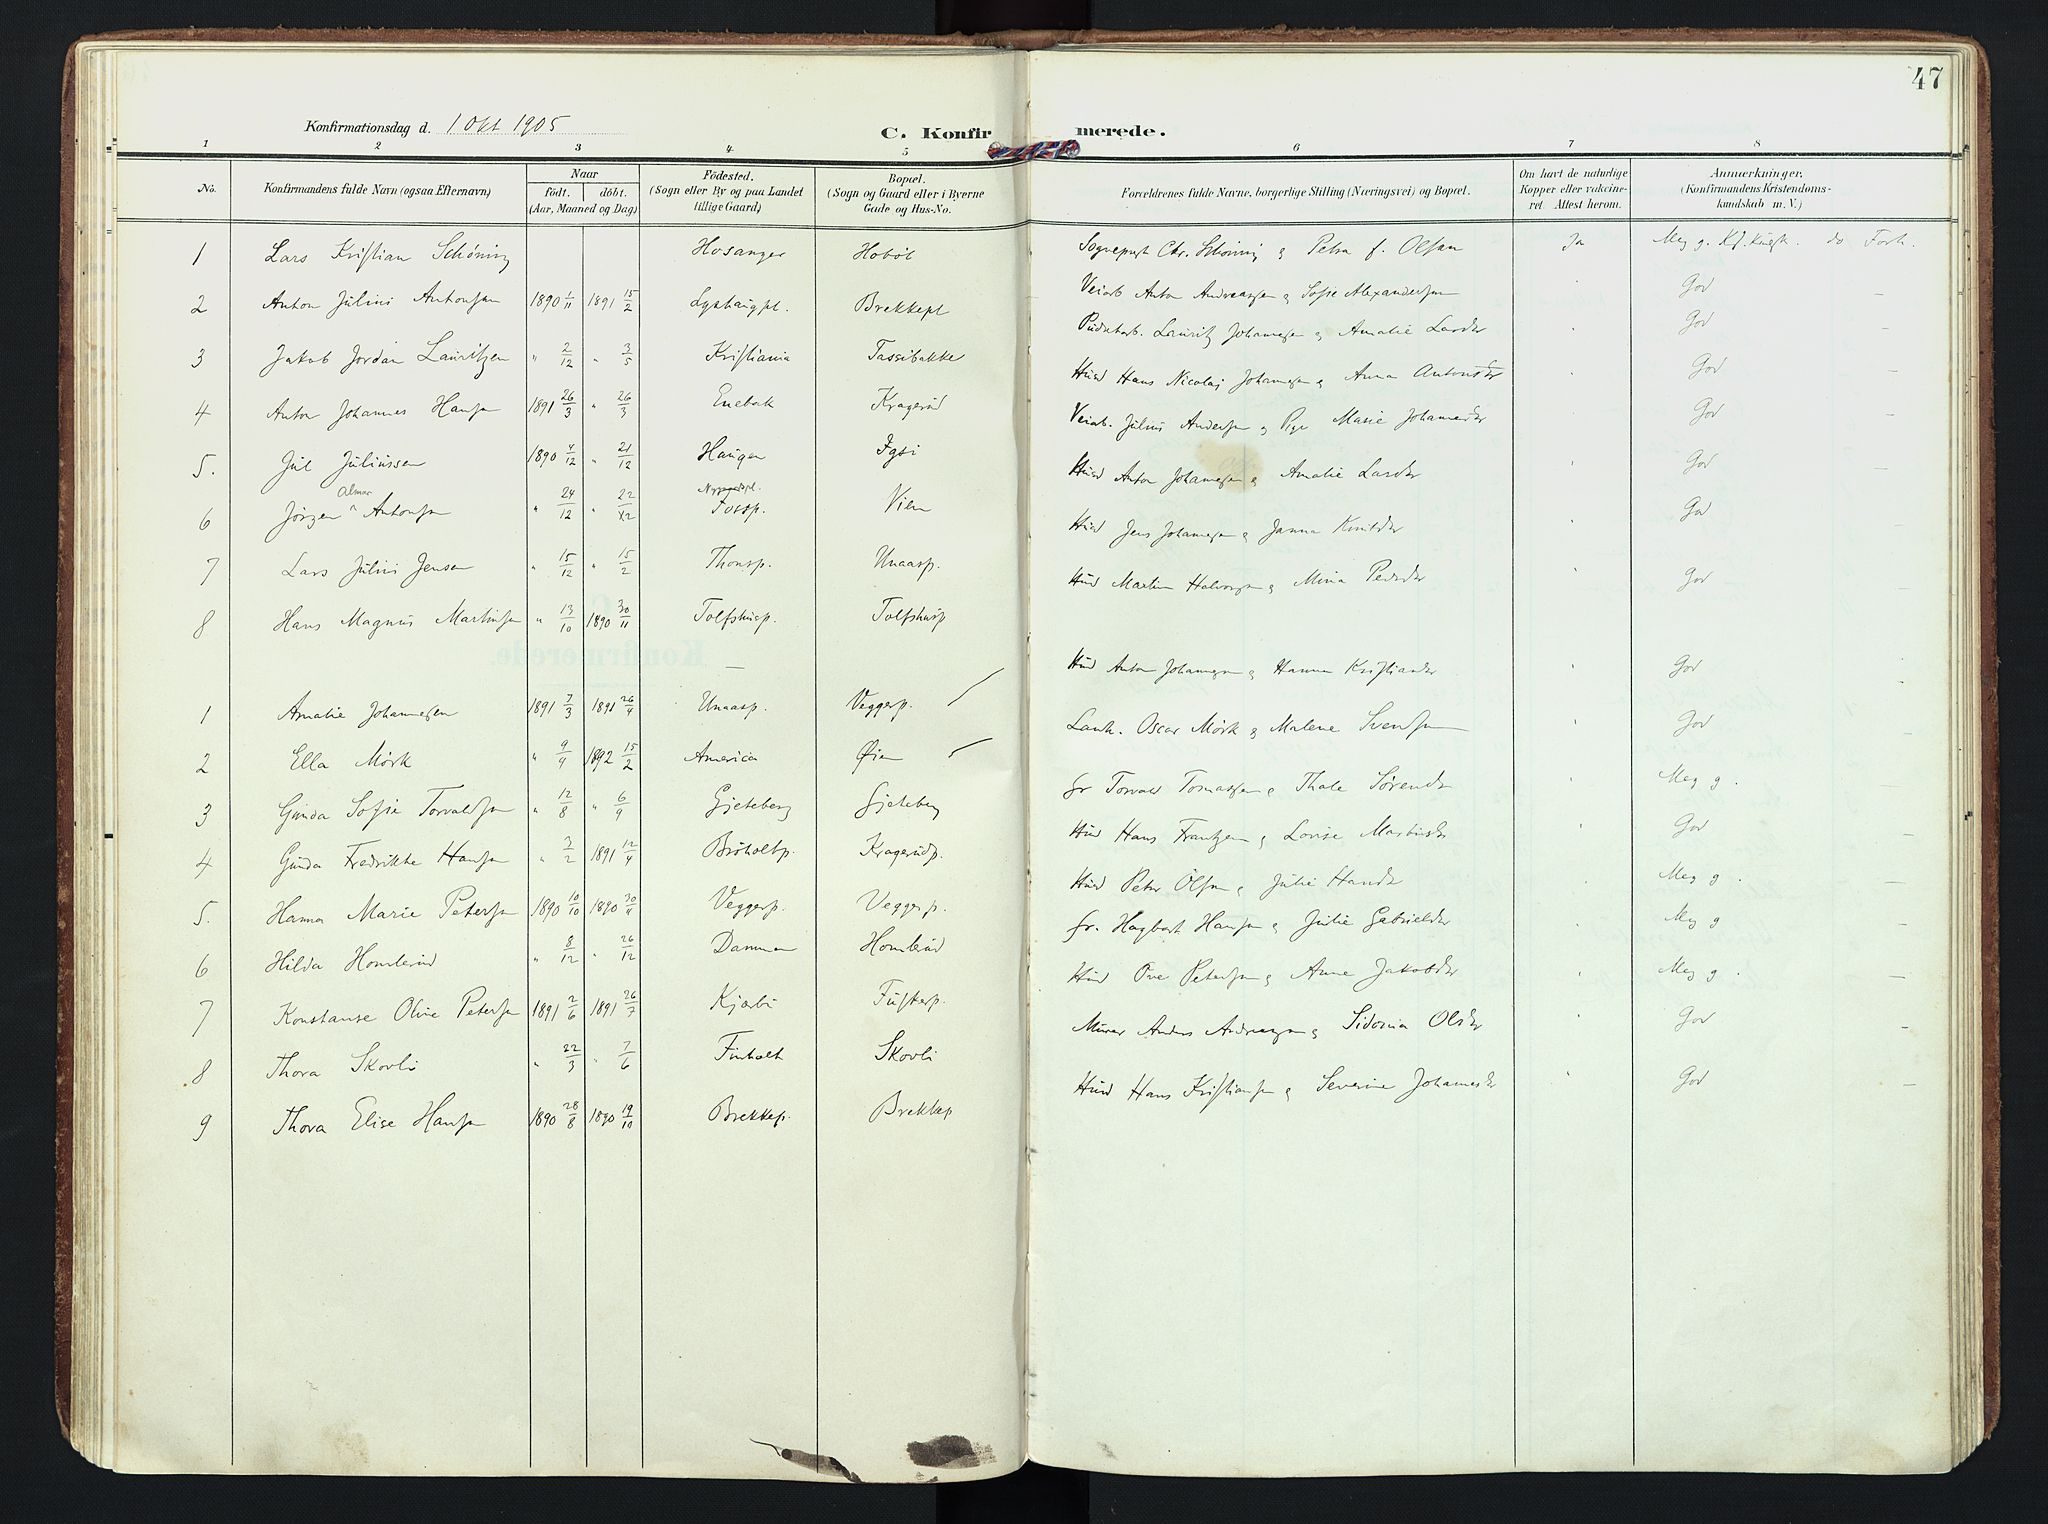 47
Konfirmationsdag d. 1 Okt 1905
C. Konfirmerede.
1 2 3 4 5 6 7 8
No. Konfirmandens fulde Navn (ogsaa Efternavn) Naar födt. döbt. (Aar, Maaned og Dag) Födested. (Sogn eller By og paa Landet tillige Gaard) Bopæl. (Sogn og Gaard eller i Byerne Gade og Hus-No. Forældrenes fulde Navne, borgerlige Stilling (Næringsvei) og Bopæl. Om havt de naturlige Kopper eller vakcineret. Attest herom. Anmærkninger. (Konfirmandens Kristendomskundskab m. V.)
1 Lars Kristian Schöning Hosanger Hobøl Chr. Schöning og Petra f. Olsen Ja Meg g.
2 Anton Julius Antonsen 1890 1/11 1891 15/2 Brekkepl Veiarb Anton Andreassen og Sofie Alexandersen God
3 Jakob Jordan Lauritzen " 2/12 " 3/5 Kristiania Tassibakke Lauritz Johannesen og Amalie Larsdr God
4 Anton Johannes Hansen 1891 26/3 " 26/3 Enebak Kragerud Husd Hans Nicolaj Johannesen og Anna Antonsdr God
5. Jul Juliussen 1890 4/12 " 21/12 Haugen Igsi Veiarb. Julius Andersen og Pige Marie Johannesdr God
6 Jörgen Almar Antonsen " 24/12 " 22/12 Fossp. Vien Husd Anton Johannesen og Amalie Larsdr God
7 Lars Julius Jensen " 15/12 " 15/2 Thonsp. Unaasp. Husd Jens Johannesen og Janna God
8 Hans Magnus Martinsen " 13/10 1890 30/11 Tolfshusp. Tolfshusp Husd Martin Halvorsen og Mina Pedersdr God
1 Amalie Johannesen 1891 7/3 1891 26/4 Unaasp. Veggerp. Husd Anton Johannesen og Hanna Kristiansdr God
2 Ella Mörk " 9/4 1892 15/2 America Øien Oscar Mörk og Malene Svensen God
3 Gunda Sofie Torvaldsen " 12/8 " 6/9 Gjeteberg Gjeteberg Gr Torvald Tomassen og Thale Sörensdr Meg g.
4 Gunda Fredrikke Hansen " 3/2 1891 12/4 Bröholtp. Kragerudp. Husd Hans Frantzen og Lovise Martinsdr God
5. Hanna Marie Petersen 1890 10/10 1890 30/11 Veggerp. Veggerp. Husd Peter Olsen og Julie Hansdr Meg g.
6 Hilda Homlerud " 8/12 " 26/12 Dammen Homlerud Gr. Hagbart Hansen og Julie Gabrielsdr Meg g
7 Konstanse Olive Petersen 1891 2/6 1891 26/7 Kjærbu Fusterp. Husd Ove Petersen og Anne Jakobsdr Meg g.
8 Thora Skovli " 22/3 " 7/6 Finholt Skovli Murer Anders Andreassen og Sidonia Olsdr God
9 Thora Elise Hansen 1890 28/8 1890 19/10 Brekkep. Brekkep Husd Hans Kristiansen og Severine Johannesdr God